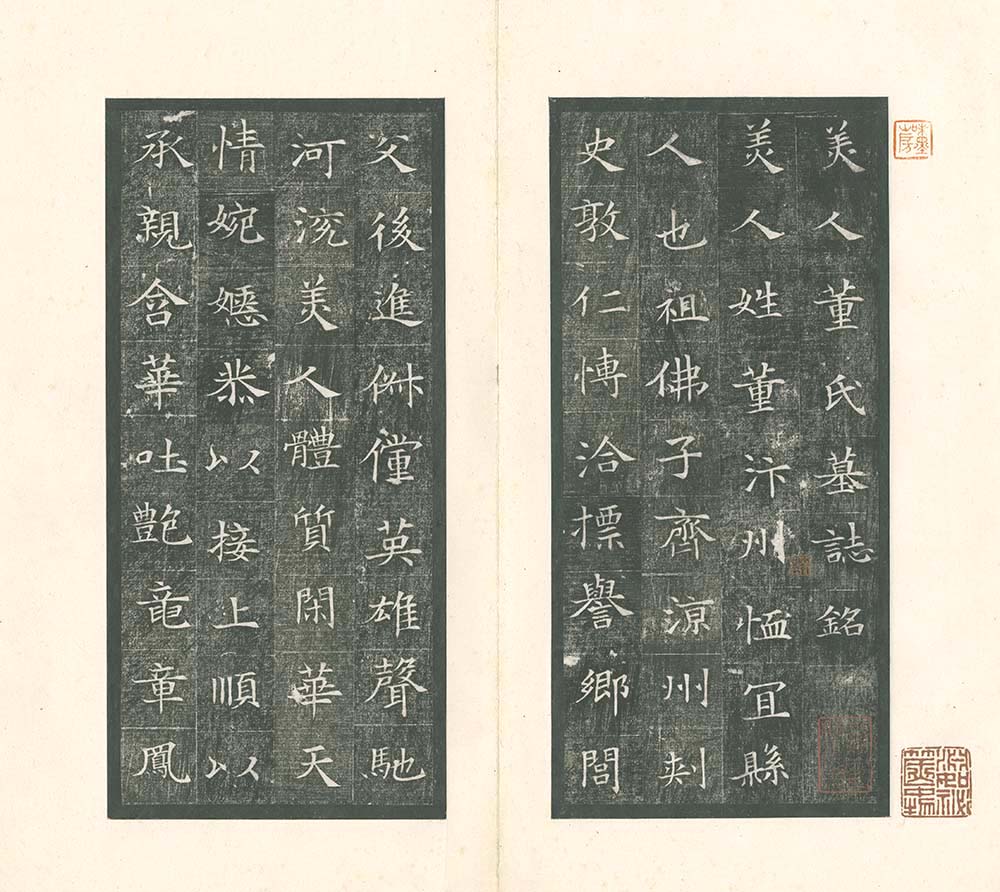 美人董氏墓誌銘
美人姓董汴州恤宜縣
人也祖佛子齊涼州刾
史敦仁博洽摽譽鄉閭
父後進俶儻英雄聲馳
河兗美人體質閑華天
情婉嫕恭以接上順以
承親含華吐艷竜章鳳